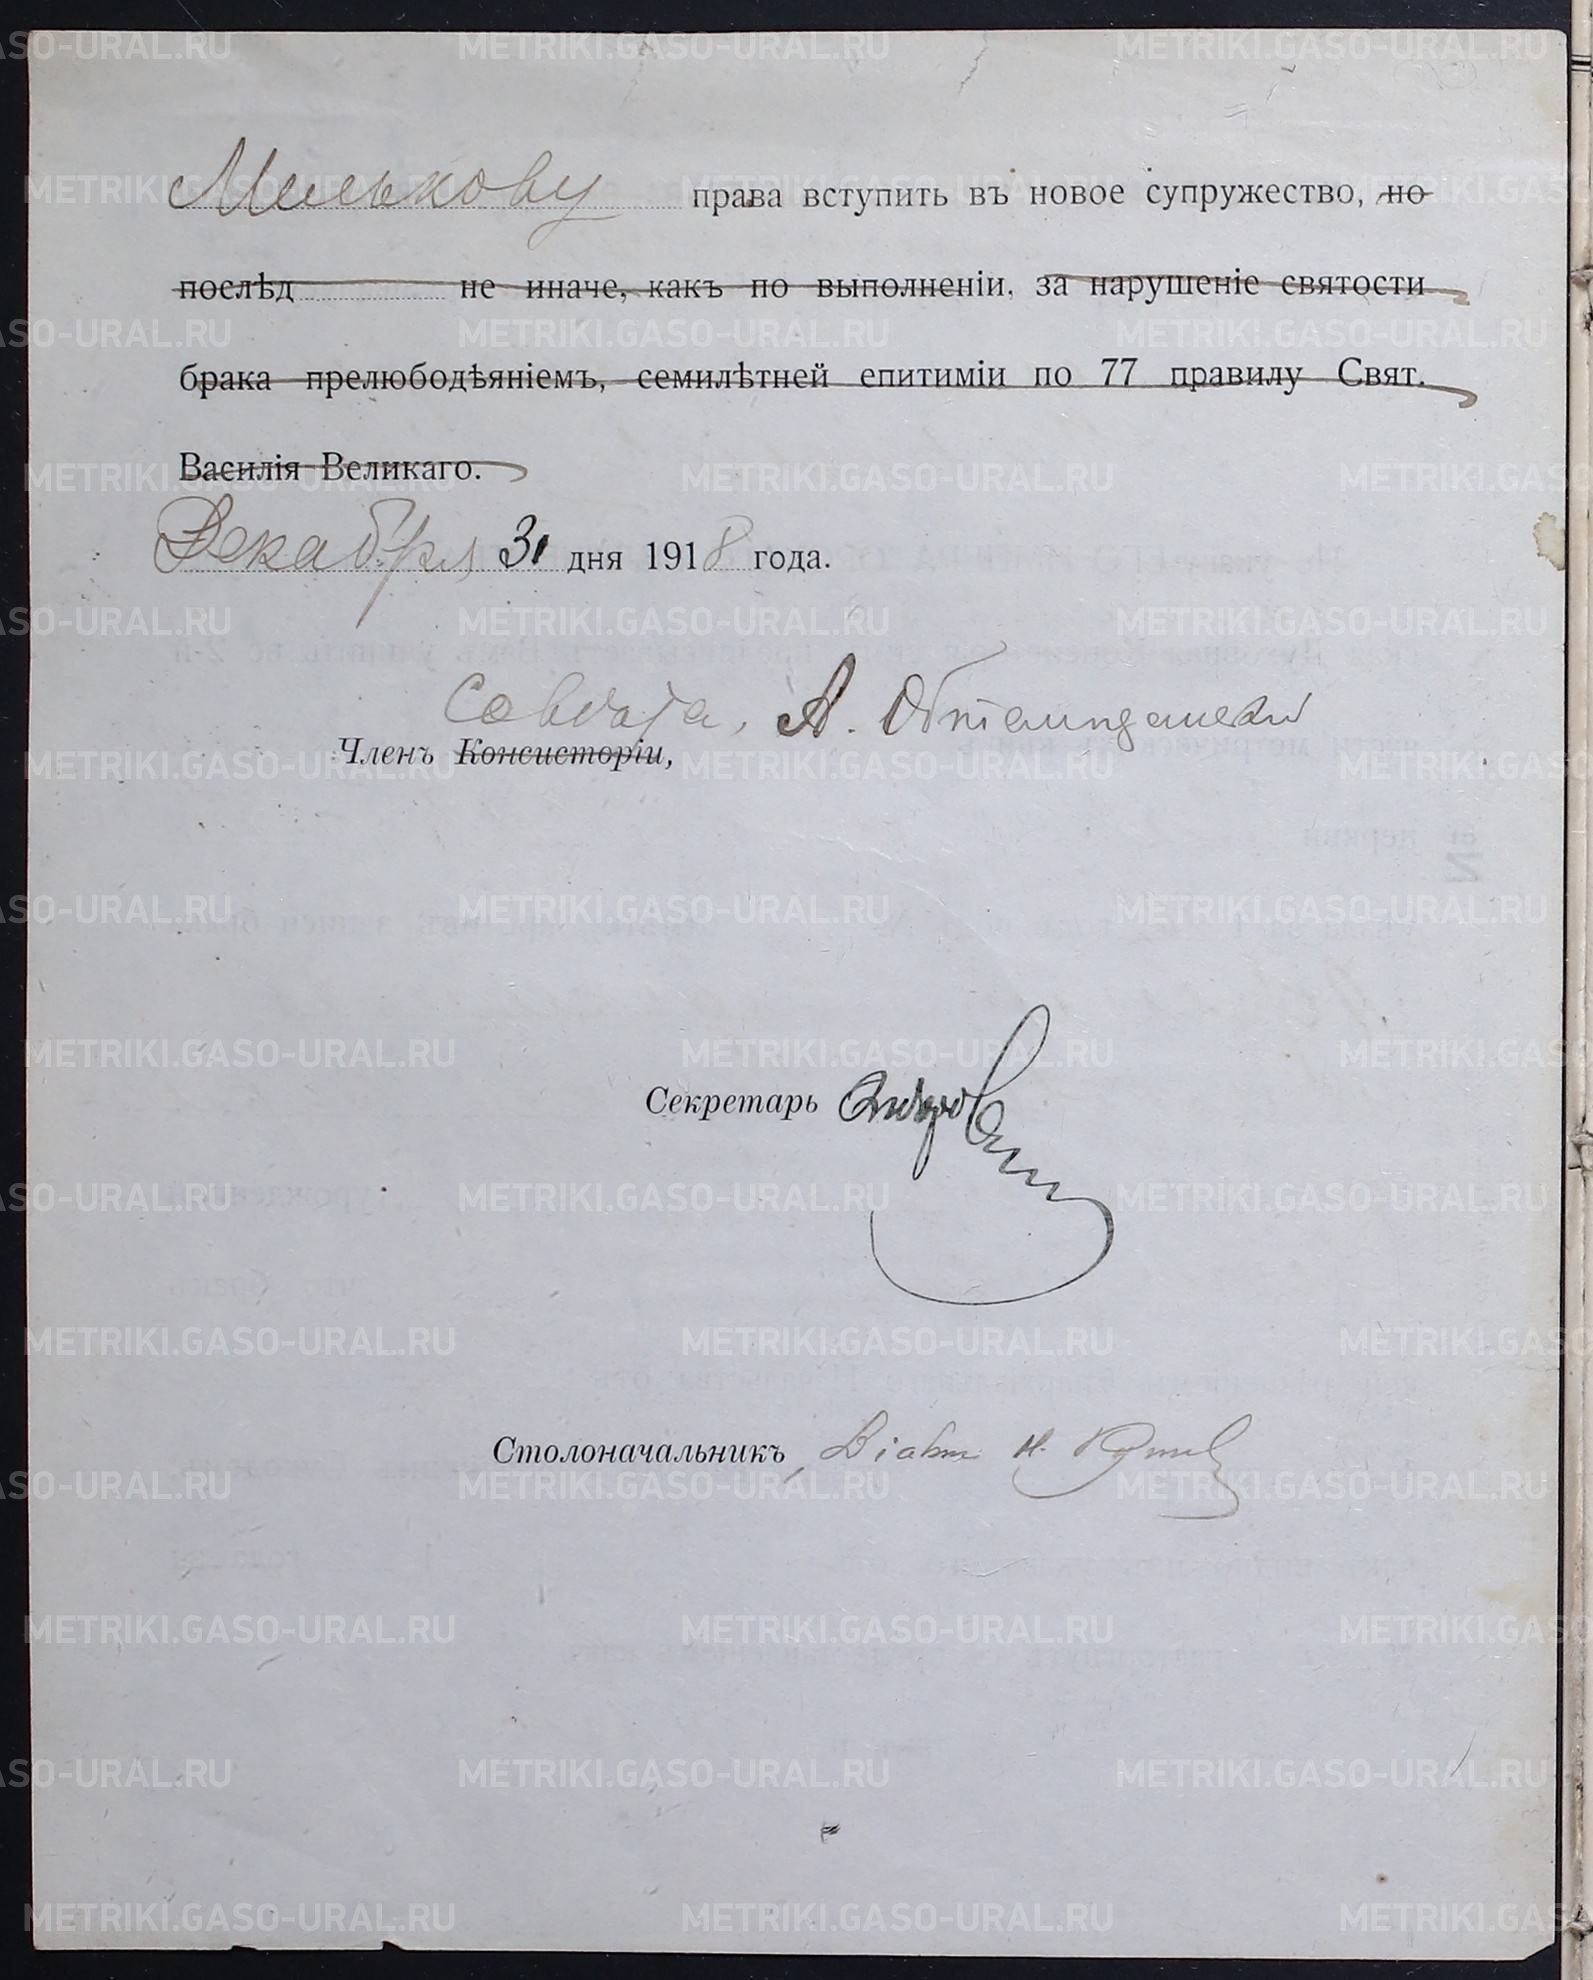 Милькову права вступить въ новое супружество, но
послѣд не иначе, какъ по выполненіи, за нарушеніе святости
брака прелюбодѣяніемъ, семилѣтней епитиміи по 77 правилу Свят.
Василія Великаго.
Декабря 31 дня 1918 года.
Совѣта, А.
Членъ Консисторіи,
Секретарь
Столоначальникъ, Н.